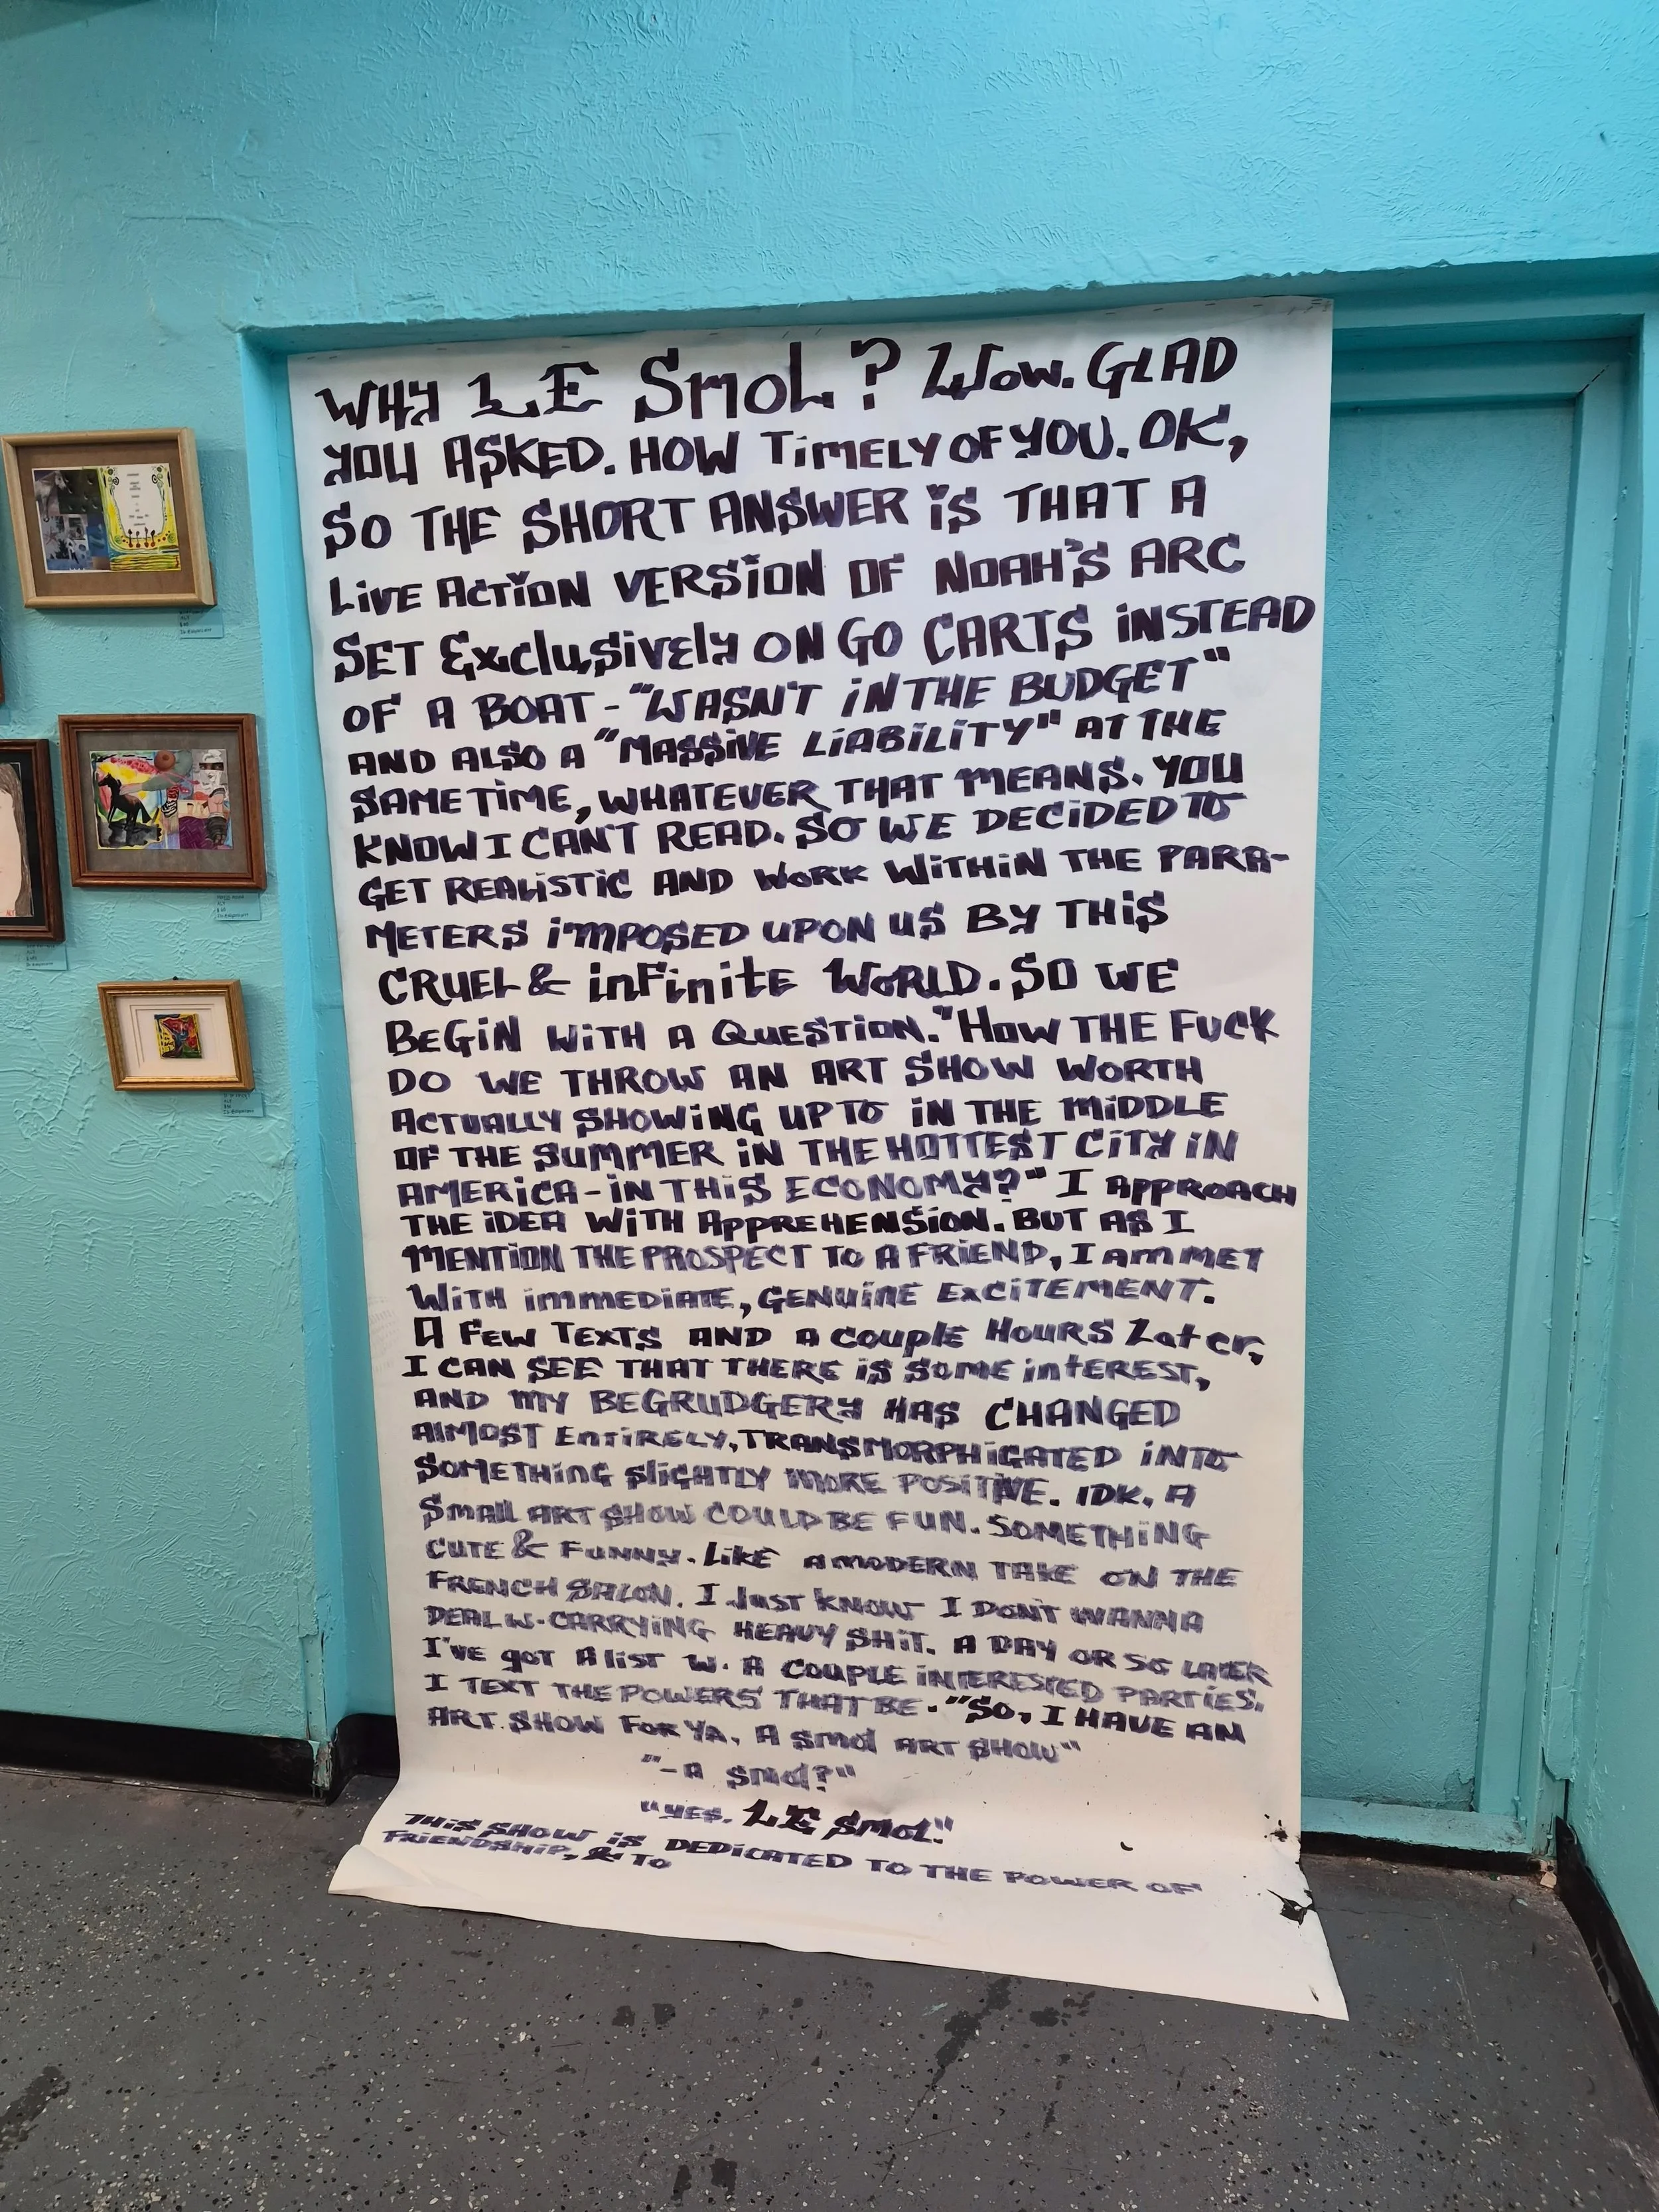 WHY LE SMOL? WOW. GLAD
YOU ASKED. HOW TIMELY OF YOU. OK,
SO THE SHORT ANSWER IS THAT A
LIVE ACTION VERSION OF NOAH'S ARC
SET Exclusively ON GO CARTS INSTEAD
OF A BOAT - "WASN'T IN THE BUDGET"
AND ALSO A "MASSIVE LIABILITY" AT THE
SAME TIME, WHATEVER THAT MEANS. YOU
KNOW I CAN'T READ. SO WE DECIDED TO
GET REALISTIC AND WORK WITHIN THE PARA-
METERS IMPOSED UPON US BY THIS
CRUEL & inFinitE WORLD. SO WE
BEGIN WITH A QUESTION. "HOW THE FUCK
DO WE THROW AN ART SHOW WORTH
ACTUALLY SHOWING UP TO IN THE MIDDLE
OF THE SUMMER IN THE HOTTEST CITY IN
AMERICA - IN THIS ECONOMY?" I APPROACH
THE IDEA WITH APPREHENSION. BUT AS I
MENTION THE PROSPECT TO A FRIEND, I AM MET
WITH IMMEDIATE, GENUINE EXCITEMENT.
A FEW TEXTS AND A COUPLE HOURS Later,
I CAN SEE THAT THERE IS SOME INTEREST,
AND MY BEGRUDGERY HAS CHANGED
ALMOST ENTIRELY, TRANSMORPHIGATED INTO
SOMETHING SLIGHTLY MORE POSITIVE. IDK, A
SMALL ART SHOW COULD BE FUN. SOMETHING
CUTE & FUNNY. LIKE A MODERN TAKE ON THE
FRENCH SALON. I JUST KNOW I DON'T WANNA
DEAL W. CARRYING HEAVY SHIT. A DAY OR SO LATER
I'VE GOT A LIST W. A COUPLE INTERESTED PARTIES.
I TEXT THE POWERS THAT BE. "SO, I HAVE AN
ART SHOW FOR YA. A SMOL ART SHOW"
"- A SMOL?"
"YES. LE SMOL."
THIS SHOW IS DEDICATED TO THE POWER OF
FRIENDSHIP, & TO